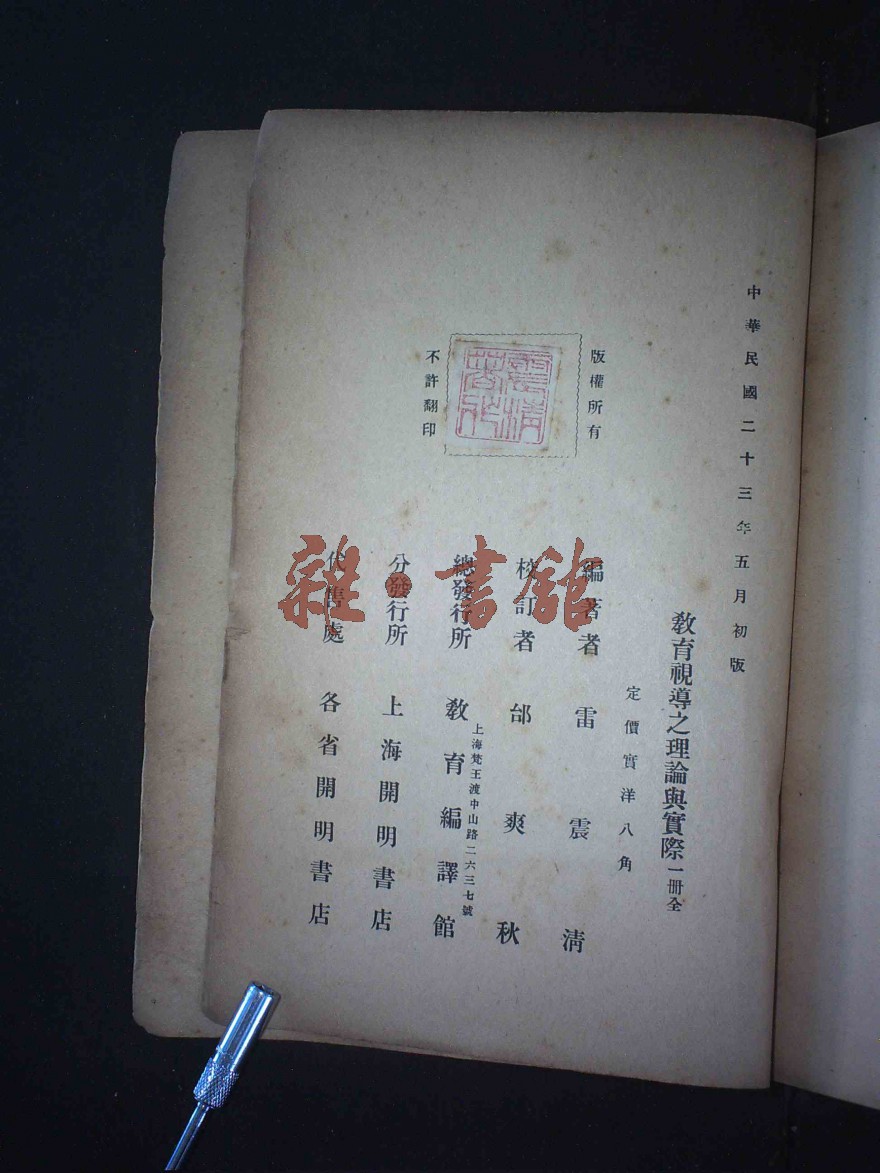 中華民國二十三年五月初版
教育視導之理論與實際 一册全
定價實洋八角
版權所有
不許翻印
編著者 雷震清
校訂者 邰爽秋
總發行所 教育編譯館
上海梵王渡中山路二六三七號
分發行所 上海開明書店
代售處 各省開明書店
雜·書館